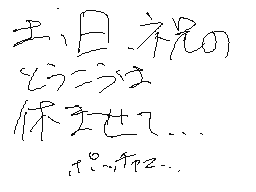 土、日、祝の
とうこうは
休ませて...
ポッチャマ...